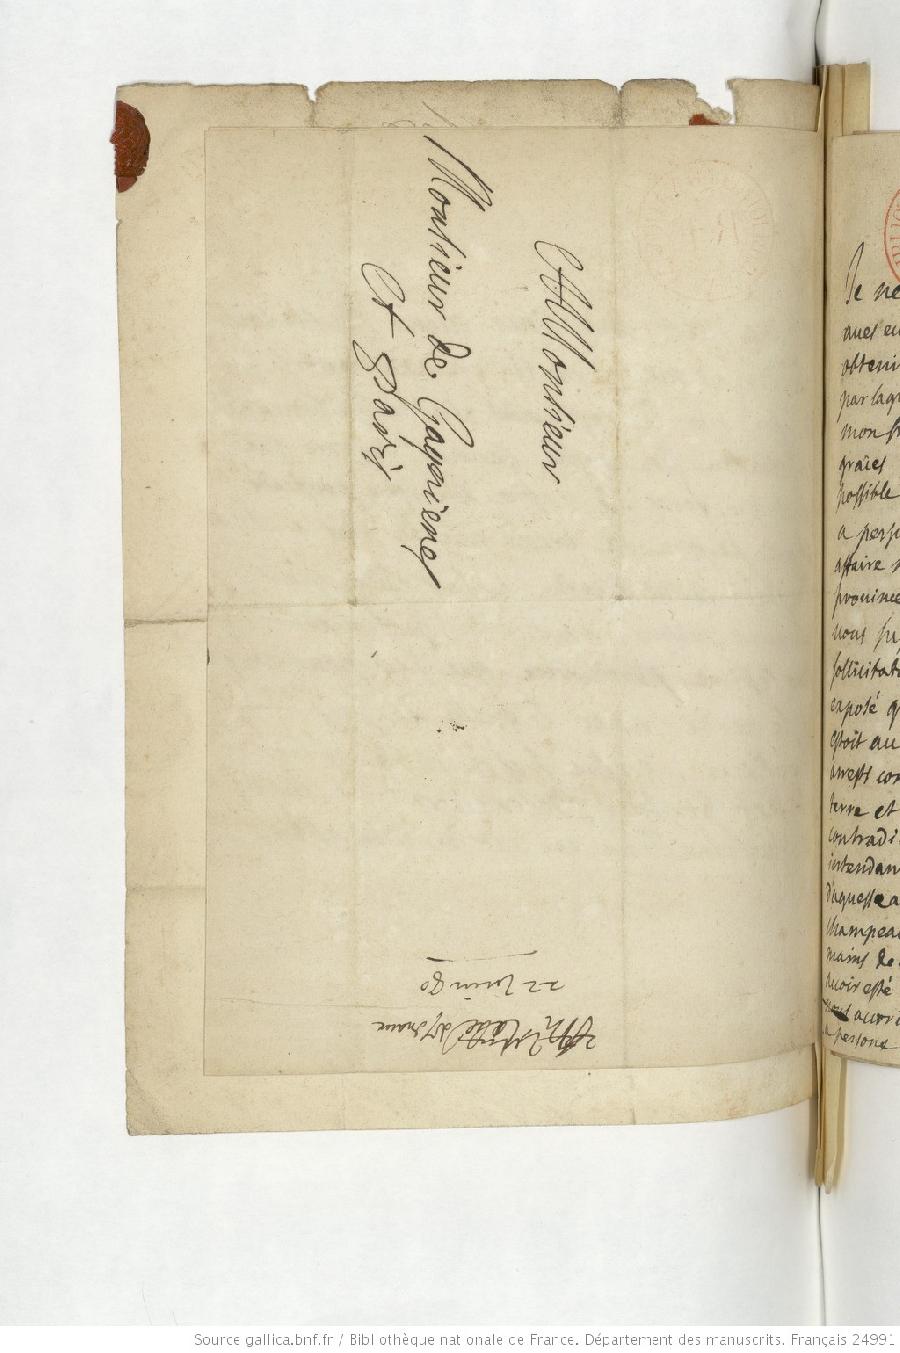 A Monsieur
Monsieur de Gaynieres
A Paris
22 Juin 80
Je ne
aues eu
obteni
par laq
mon f
graces
possible
a perso
affaire
prouince
vous
sollicitat
exposé q
estoit au
arrests con
terre et
contradi
intendan
d'aguessea
champea
mains de
auoir esté
auoi
a persone
Source gallica.bnf.fr / Bibliothèque nationale de France. Département des manuscrits. Français 24991